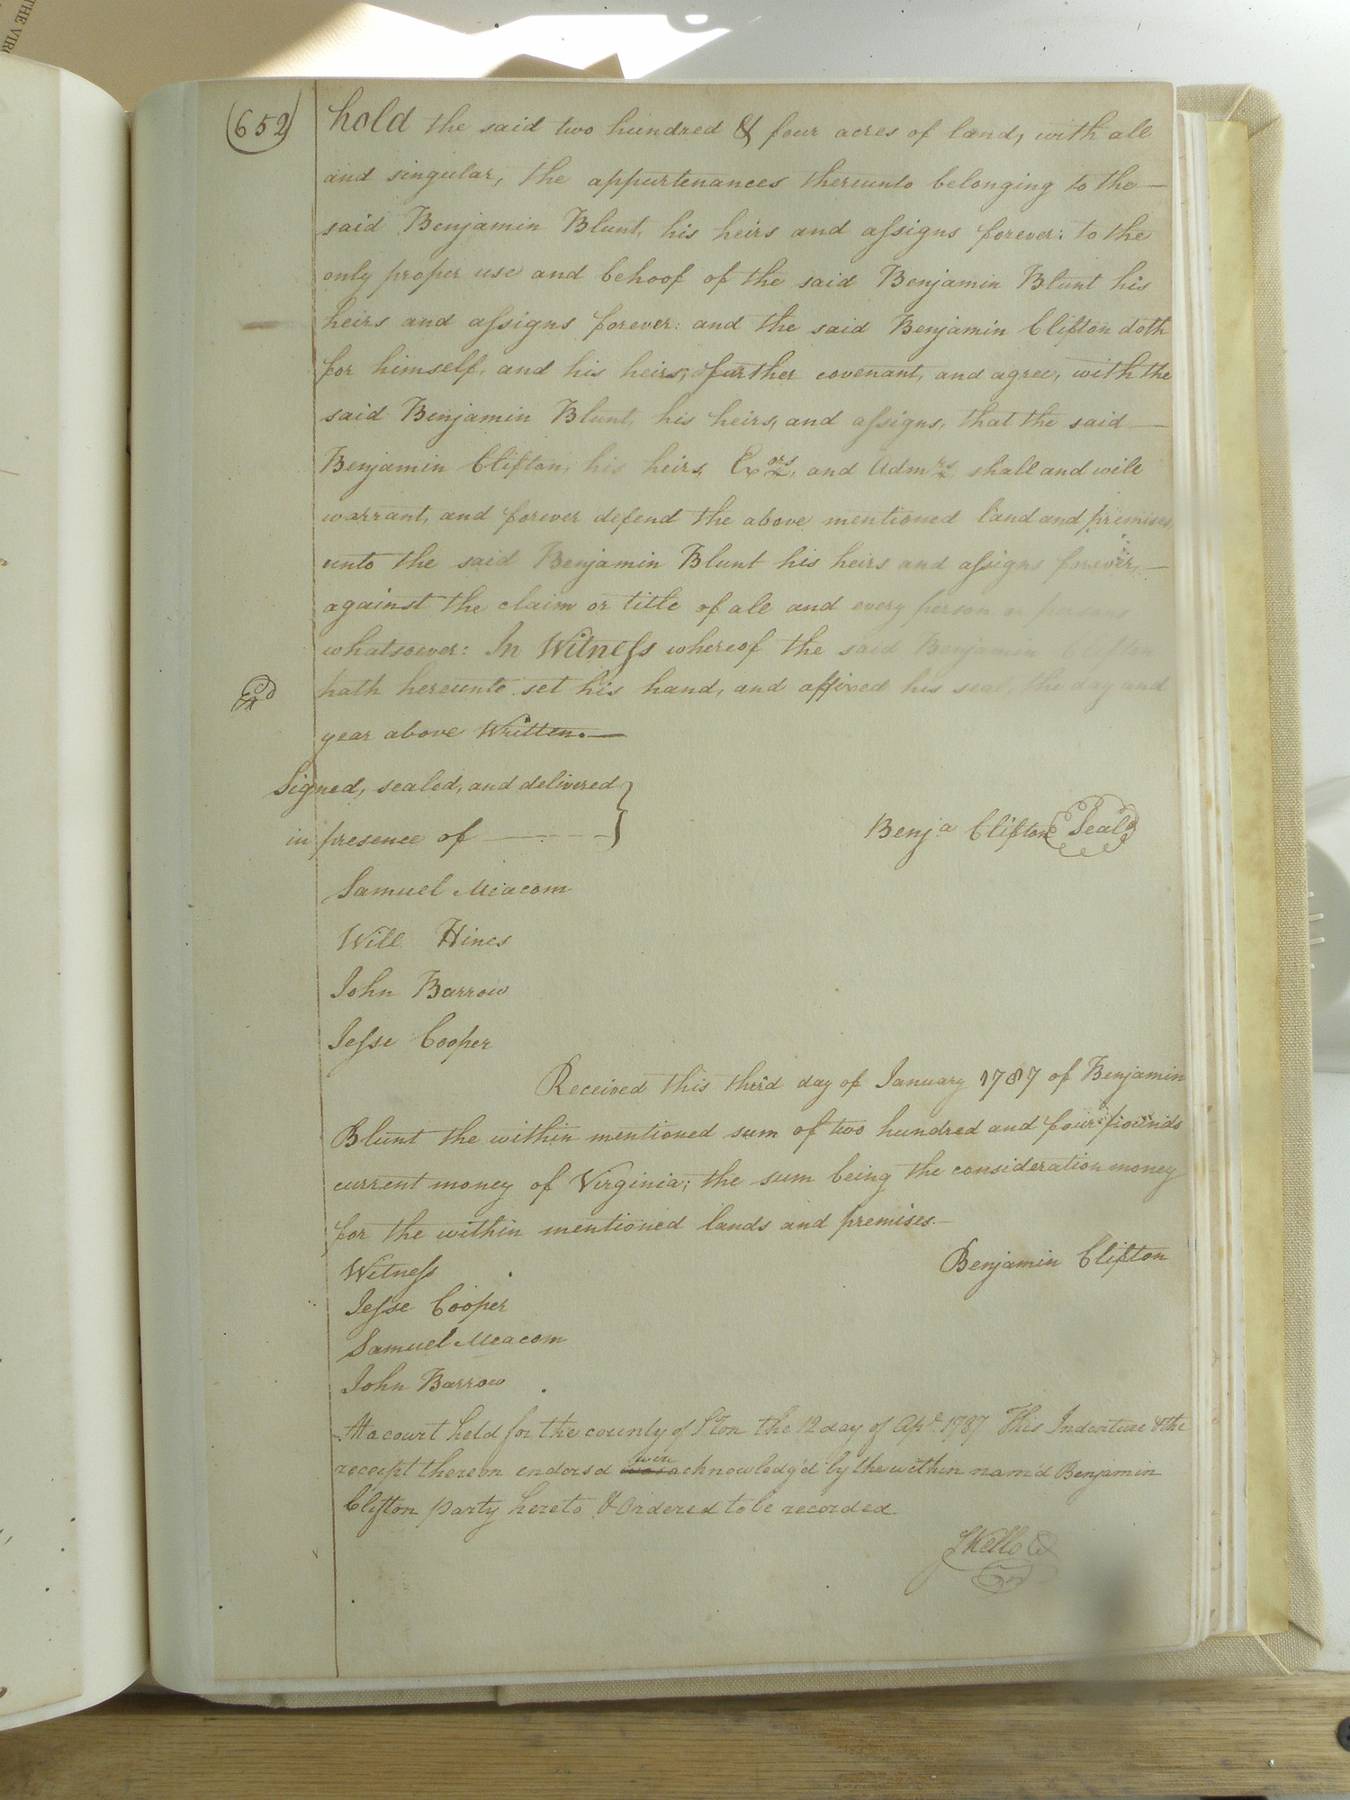 THE VIR
(652)
hold the said two hundred & four acres of land, with all
and singular, the appurtenances thereunto belonging to the —
said Benjamin Blunt, his heirs and aſsigns forever: to the
only proper use and behoof of the said Benjamin Blunt his
heirs and aſsigns forever: and the said Benjamin Clifton doth
for himself, and his heirs, further covenant, and agree, with the
said Benjamin Blunt, his heirs, and aſsigns, that the said —
Benjamin Clifton, his heirs, Exors, and Admrs shall and will
warrant, and forever defend the above mentioned land and premises,
unto the said Benjamin Blunt his heirs and aſsigns forever, —
against the claim or title of all and every person or persons
whatsoever: In Witneſs whereof the said Benjamin Clifton
hath hereunto set his hand, and affixed his seal, the day and
year above Written. —
Signed, sealed, and delivered }
in presence of — }
Benja Clifton Seal
Samuel Meacom
Will Hines
John Barrow
Jeſse Cooper
Received this third day of January 1787 of Benjamin
Blunt the within mentioned sum of two hundred and four pounds
current money of Virginia; the sum being the consideration money
for the within mentioned lands and premises. —
Benjamin Clifton
Witneſs
Jeſse Cooper
Samuel Meacom
John Barrow
At a court held for the county of Sºton the 12 day of Apl 1787 This Indenture & the
receipt thereon endorsd were acknowledg'd by the within nam'd Benjamin
Clifton party hereto & Ordered to be recorded